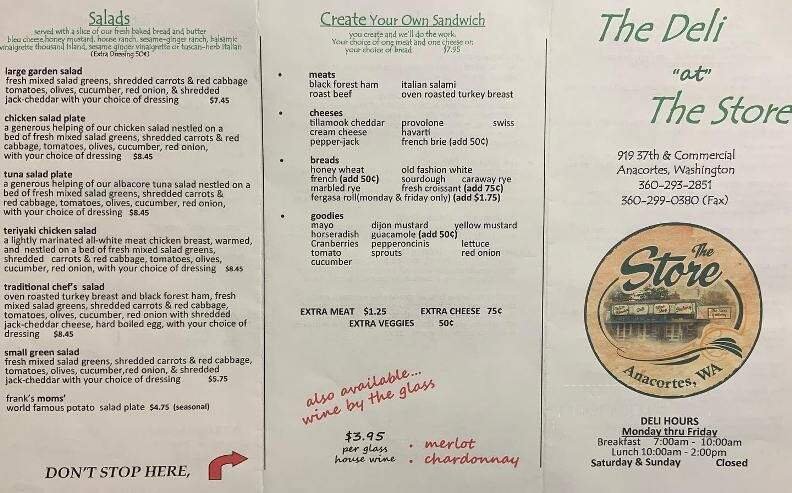 Salads
served with a slice of our fresh baked bread and butter
bleu cheese,honey mustard, house ranch, sesame-ginger ranch, balsamic
vinaigrette thousand island, sesame ginger vinaigrette or tuscan-herb italian
(Extra Dressing 50¢)
large garden salad
fresh mixed salad greens, shredded carrots & red cabbage
tomatoes, olives, cucumber, red onion, & shredded
jack-cheddar with your choice of dressing $7.45
chicken salad plate
a generous helping of our chicken salad nestled on a
bed of fresh mixed salad greens, shredded carrots & red
cabbage, tomatoes, olives, cucumber, red onion,
with your choice of dressing $8.45
tuna salad plate
a generous helping of our albacore tuna salad nestled on a
bed of fresh mixed salad greens, shredded carrots &
red cabbage, tomatoes, olives, cucumber, red onion,
with your choice of dressing $8.45
teriyaki chicken salad
a lightly marinated all-white meat chicken breast, warmed,
and nestled on a bed of fresh mixed salad greens,
shredded carrots & red cabbage, tomatoes, olives,
cucumber, red onion, with your choice of dressing $8.45
traditional chef's salad
oven roasted turkey breast and black forest ham, fresh
mixed salad greens, shredded carrots & red cabbage,
tomatoes, olives, cucumber, red onion with shredded
jack-cheddar cheese, hard boiled egg, with your choice of
dressing $8.45
small green salad
fresh mixed salad greens, shredded carrots & red cabbage,
tomatoes, olives, cucumber,red onion, & shredded
jack-cheddar with your choice of dressing $5.75
frank's moms'
world famous potato salad plate $4.75 (seasonal)
DON'T STOP HERE,
Create Your Own Sandwich
you create and we'll do the work.
Your choice of one meat and one cheese on
your choice of bread $7.95
• meats
black forest ham italian salami
roast beef oven roasted turkey breast
• cheeses
tillamook cheddar provolone swiss
cream cheese havarti
pepper-jack french brie (add 50¢)
• breads
honey wheat old fashion white
french (add 50¢) sourdough caraway rye
marbled rye fresh croissant (add 75¢)
fergasa roll(monday & friday only) (add $1.75)
• goodies
mayo dijon mustard yellow mustard
horseradish guacamole (add 50¢)
Cranberries pepperoncinis lettuce
tomato sprouts red onion
cucumber
EXTRA MEAT $1.25 EXTRA CHEESE 75¢
EXTRA VEGGIES 50¢
also available...
wine by the glass
$3.95
per glass
house wine
• merlot
• chardonnay
The Deli
"at"
The Store
919 37th & Commercial
Anacortes, Washington
360-293-2851
360-299-0380 (Fax)
The
Store
Anacortes, WA
DELI HOURS
Monday thru Friday
Breakfast 7:00am - 10:00am
Lunch 10:00am - 2:00pm
Saturday & Sunday Closed